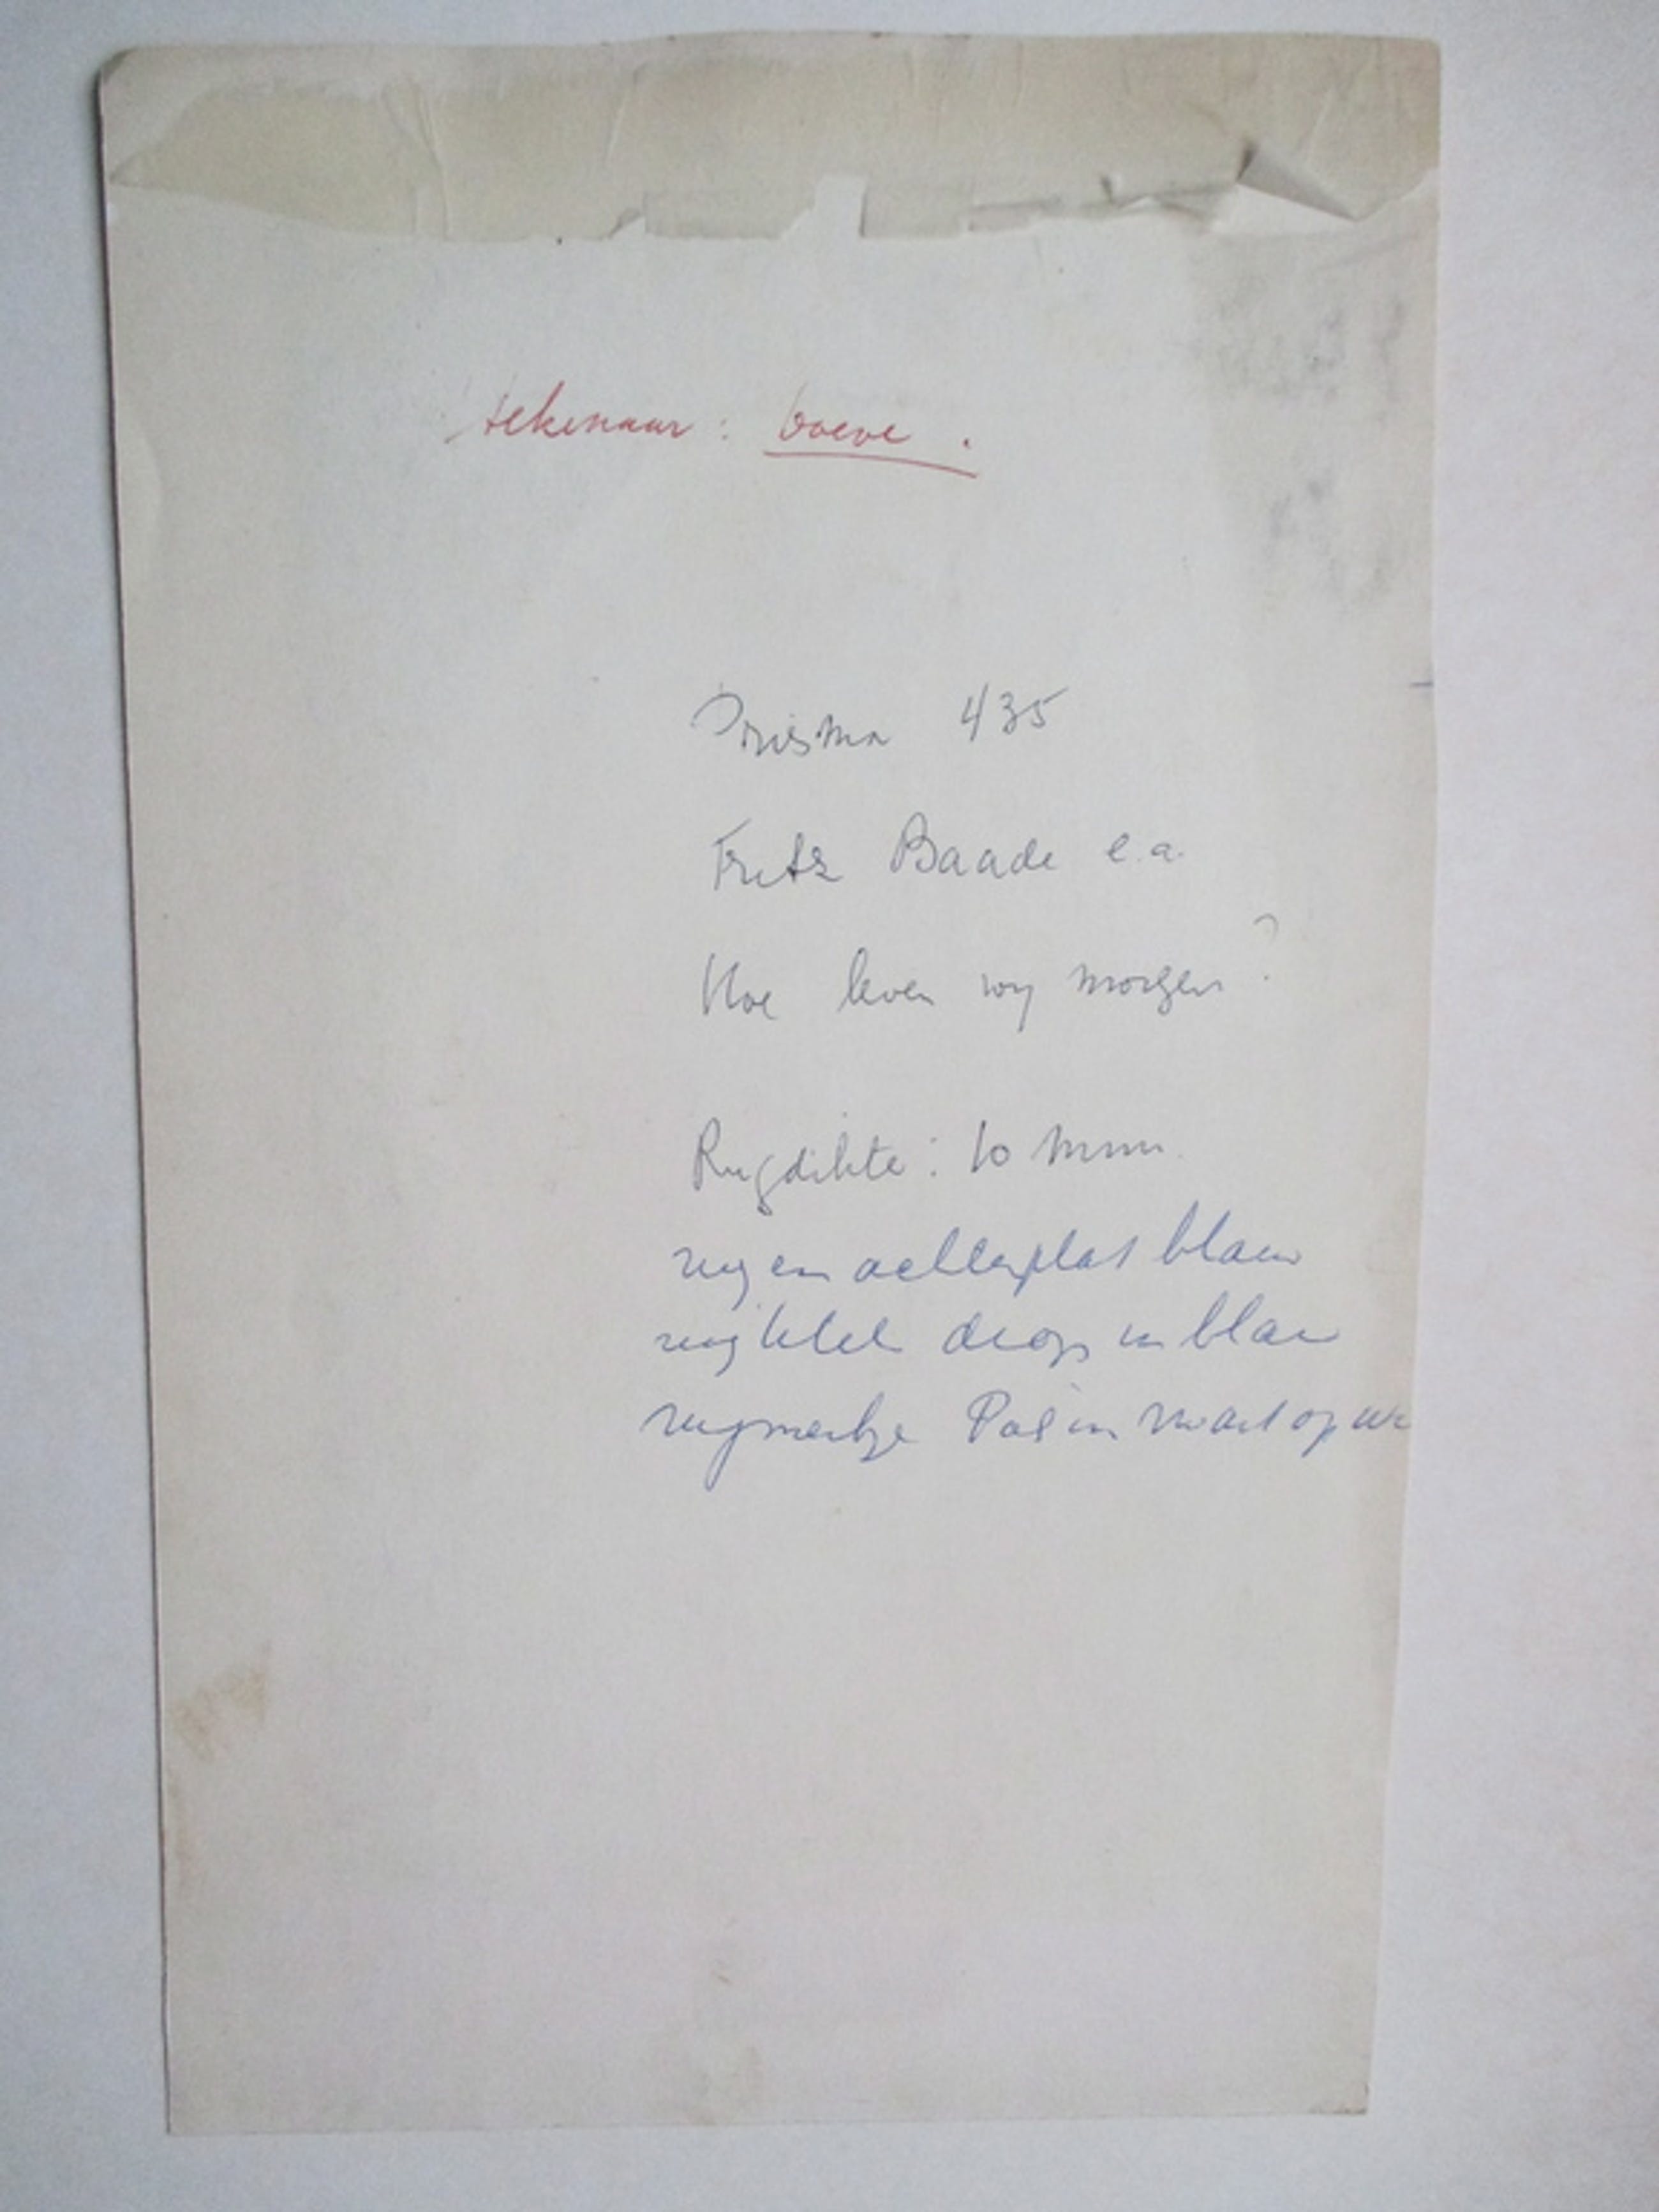 tekenaar: boeve.
Prisma 435
Fritz Baade e.a.
Hoe leven wij morgen?
Rugdikte: 10 mm.
rug en achterplat blauw
rugtitel diap in blauw
rugmerkje in zwart op